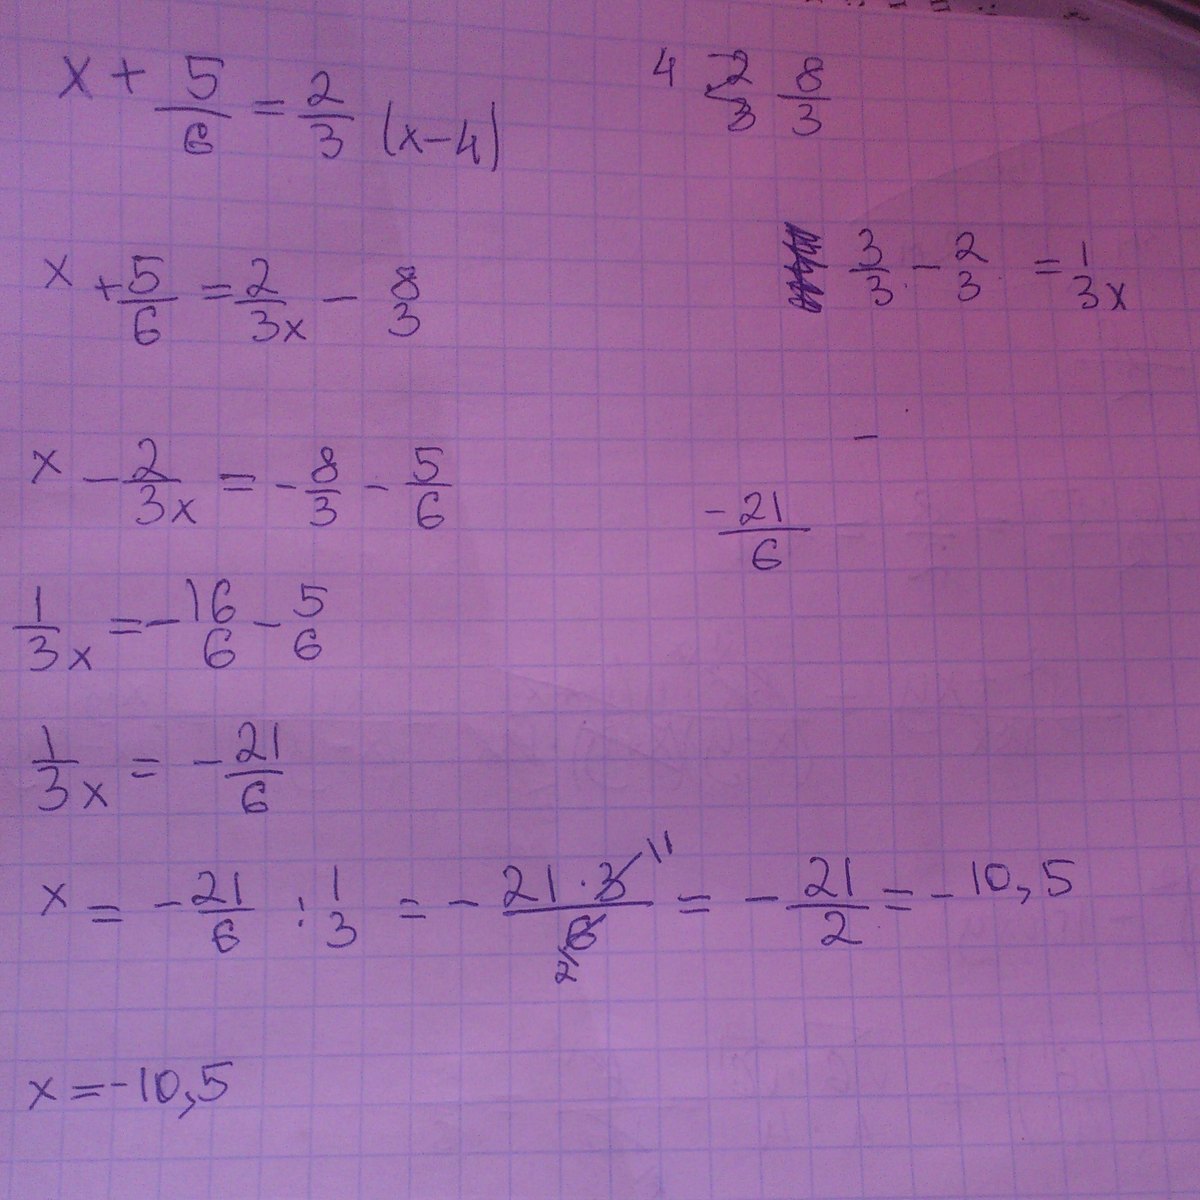 x + 5/6 = 2/3 (x-4)
4 2/3 8/3
x + 5/6 = 2/3x - 8/3
3/3 - 2/3 = 1/3x
x - 2/3x = -8/3 - 5/6
-21/6
1/3x = -16/6 - 5/6
1/3x = -21/6
x = -21/6 : 1/3 = -21·3/6 2 = -21/2 = -10,5
x = -10,5